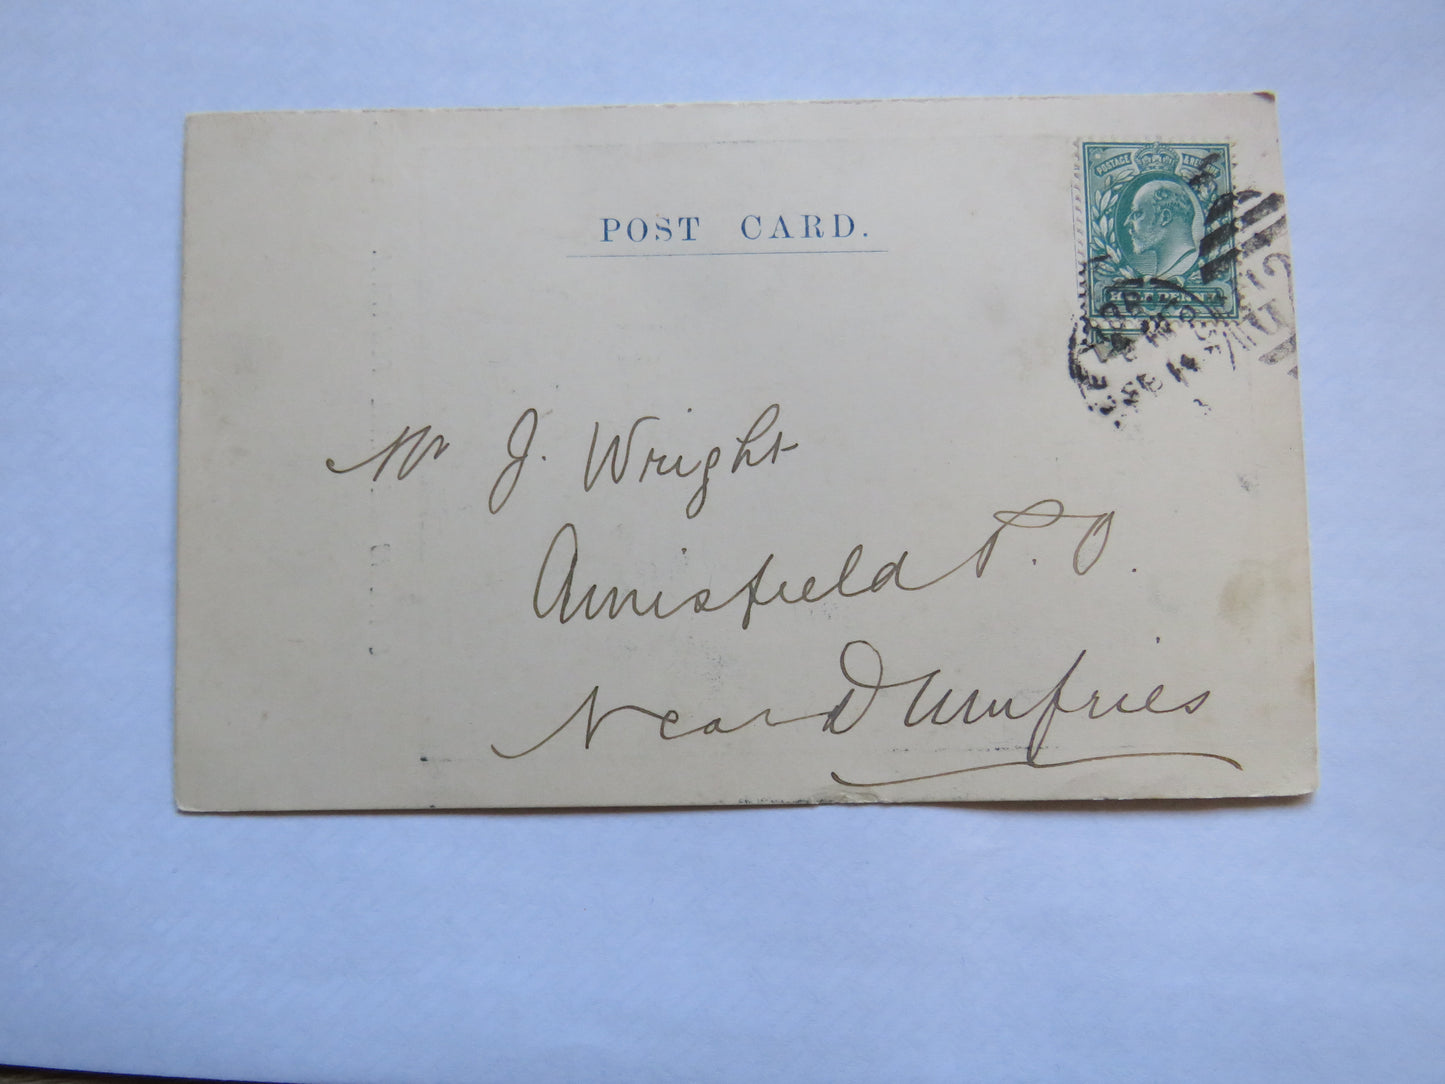 POST CARD.
POSTAGE & REVENUE
SE 14
Mr J. Wright
Amisfield P.O.
Near Dumfries